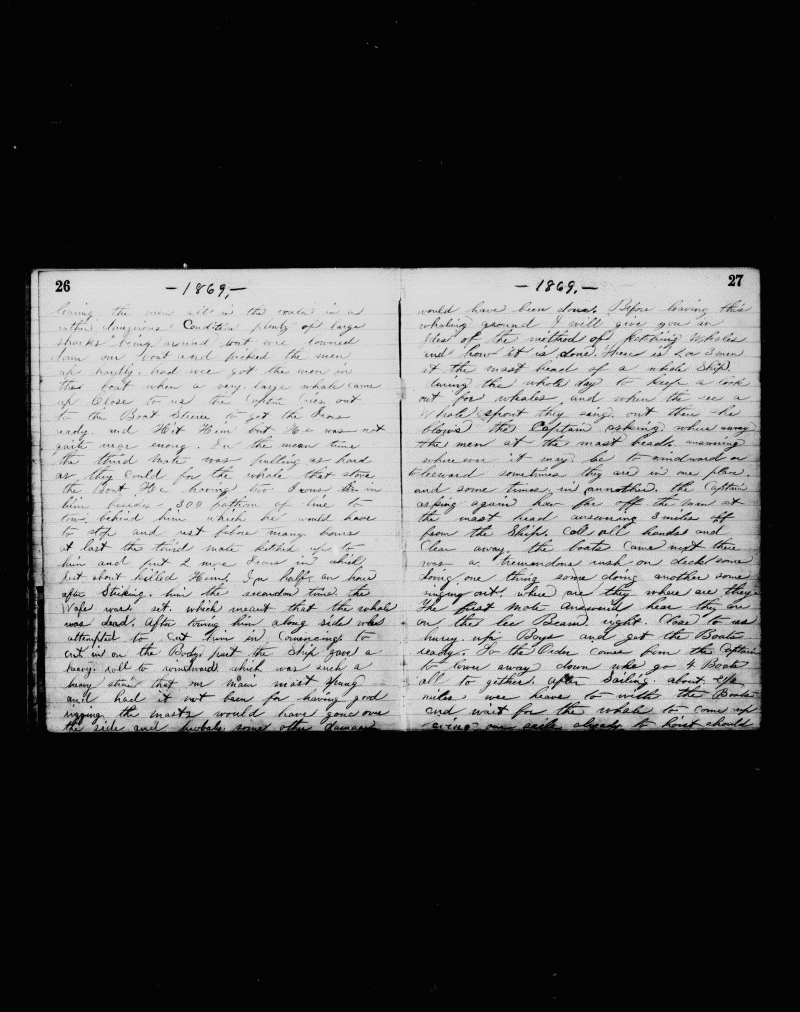 26
-1869,-
leaving the men all in the water in a
rather dangerous Condition plenty of large
sharks being around but we lowered
down our boat and picked the men
up hardly had we got the men in
the boat when a very large whale came
up Close to us the Captin cries out
to the Boat Steerer to get the Irons
ready. and Hit Him but He was not
quite near enoug. In the mean time
the third Mate was pulling as hard
as they Could for the whale that stove
the Boat He having two Irons in
him besides 300 fathom of line to
tow behind him which he would have
to stop and rest before many hours
at last the third mate up to
him and put 2 more Irons in which
just about killed Him. In half an hour
after Striking him the secondon time the
Wafe was set. which meant that the whale
was dead. After bring him along side whe
attempted to Cut him in Comencing to
cut in on the Body. just the Ship gave a
heavy roll to windward which was such a
heavy strain that our main mast sprung
and had it not been for having good
rigging the masts would have gone over
the side and probaly some other damage
27
-1869.-
would have been done. Before leaving this
whaling ground I will give you an
Idea of the method of Whales
and how it is done. There is 2 or 3 men
at the mast head of a whale Ship
during the whole day to keep a look
out for whales, and when the see a
Whale spout they sing out there she
blows the Captain asking where away
the men at the mast heads answering
where ever it may be to windward or
to leeward sometimes they are in one place
and some times in annother. the Captain
asking again how far off the Man at
the mast head answering 3 miles off
from the Ship. Call all hands and
Clear away the boats Came next there
was a tremendous rush on deck some
doing one thing some doing another some
singing out where are they where are they.
The first Mate Answered hear they are
on the lee Beam right Close to us
hurry up Boys and get the Boats
ready. So the Order comes from the Captain
to lower away down whe go 4 Boats
all to gether. After Sailing about
miles wee heave to with the Boats
and wait for the whale to come up
one to hoist should